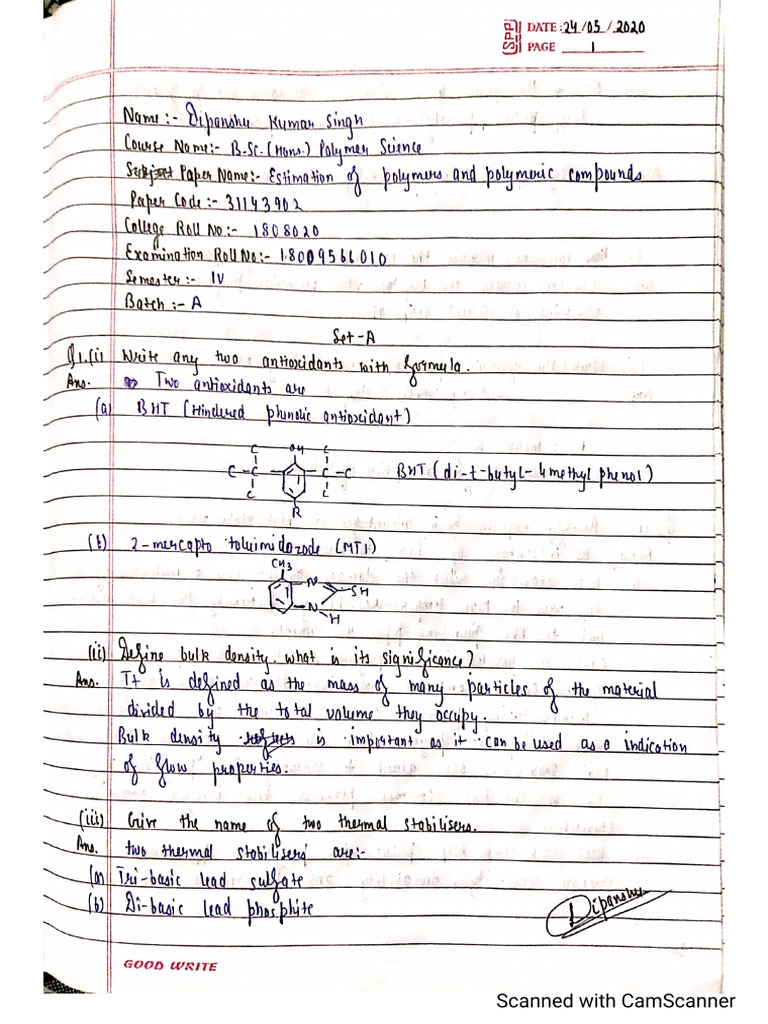 SPP DATE: 24/05/2020
PAGE 1
Name:- Dipanshu Kumar Singh
Course Name:- B.Sc. (Hons.) Polymer Science
Subject Paper Name:- Estimation of polymers and polymeric compounds
Paper Code:- 31143902
College Roll No:- 1808020
Examination Roll No:- 18009566010
Semester:- IV
Batch:- A
Set-A
Q1.(i) Write any two antioxidants with formula.
Ans. Two antioxidants are
(a) BHT (Hindered phenolic antioxidant)
C OH C
C-C C-C
C C
R
BHT (di-t-butyl-4methyl phenol)
(b) 2-mercapto toluimidazode (MTI)
CH3
N
SH
N
H
(ii) Define bulk density. what is its significance?
Ans. It is defined as the mass of many particles of the material
divided by the total volume they occupy.
Bulk density is important as it can be used as a indication
of flow properties.
(iii) Give the name of two thermal stabilisers.
Ans. two thermal stabilisers are:-
(a) Tri-basic lead sulfate
(b) Di-basic lead phosphite
Dipanshu
GOOD WRITE
Scanned with CamScanner